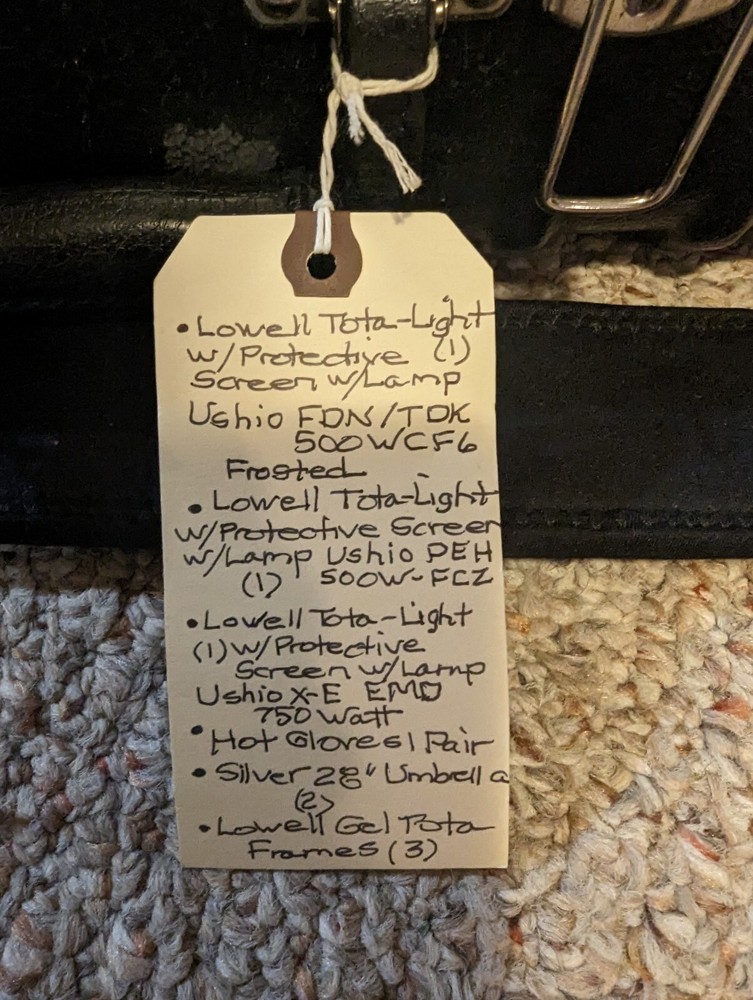 • Lowell Tota-Light
w/Protective (1)
Screen w/Lamp
Ushio FDN/TDK
500WCF6
Frosted
• Lowell Tota-Light
w/Protective Screen
w/Lamp Ushio PEH
(1) 500W-FCZ
• Lowell Tota-Light
(1) w/Protective
Screen w/Lamp
Ushio X-E EMD
750 Watt
• Hot Gloves 1 Pair
• Silver 28" Umbella
(2)
• Lowell Gel Tota
Frames (3)